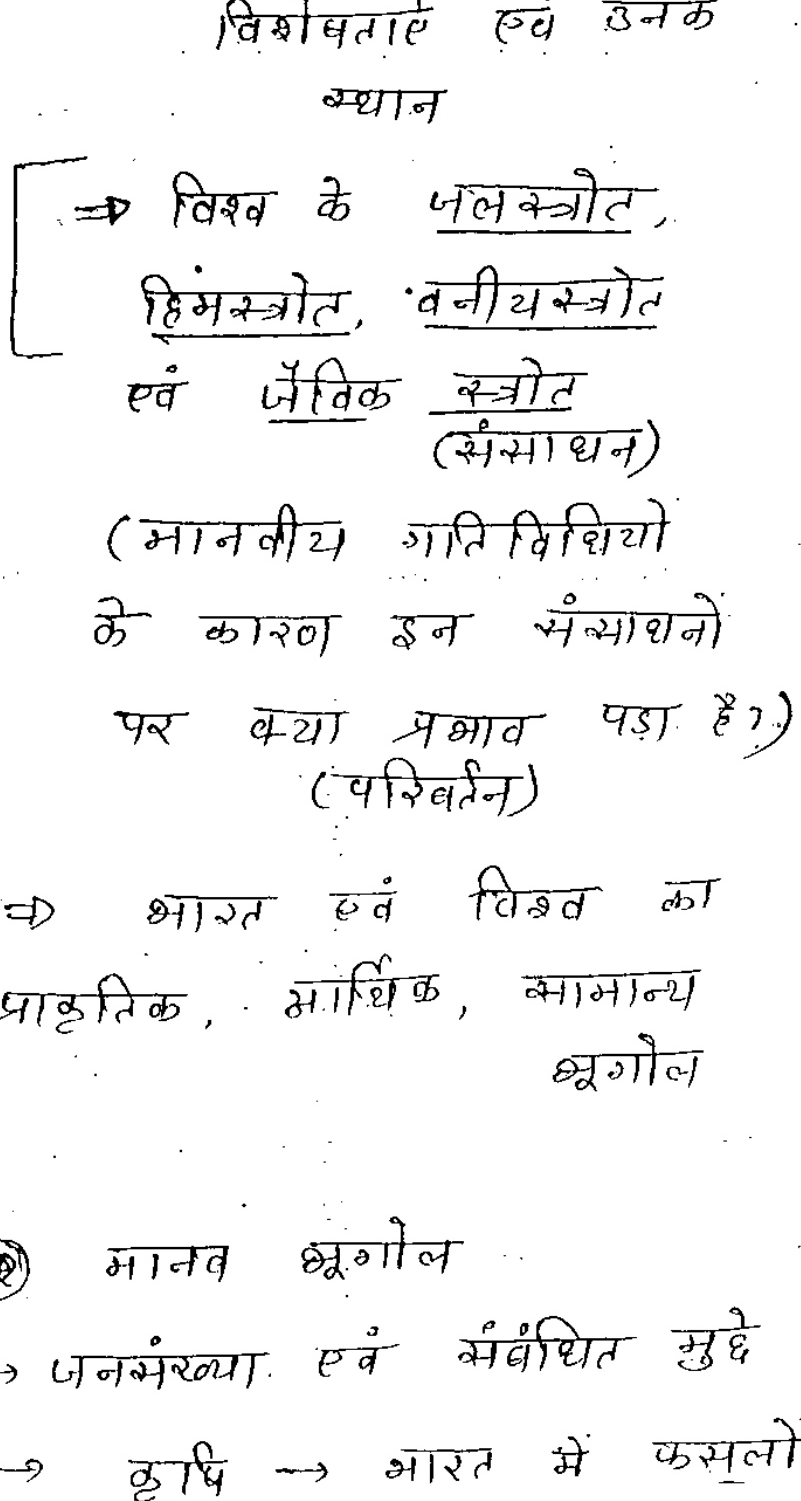 विशेषताएं एवं उनके
स्थान
⇒ विश्व के जलस्त्रोत,
हिमस्त्रोत, वनीयस्त्रोत
एवं जैविक स्त्रोत
(संसाधन)
(मानवीय गतिविधियो
के कारण इन संसाधनों
पर क्या प्रभाव पड़ा है?)
(परिवर्तन)
⇒ भारत एवं विश्व का
प्राकृतिक, आर्थिक, सामान्य
भूगोल
② मानव भूगोल
→ जनसंख्या एवं संबंधित मुद्दे
→ कृषि → भारत में फसलों